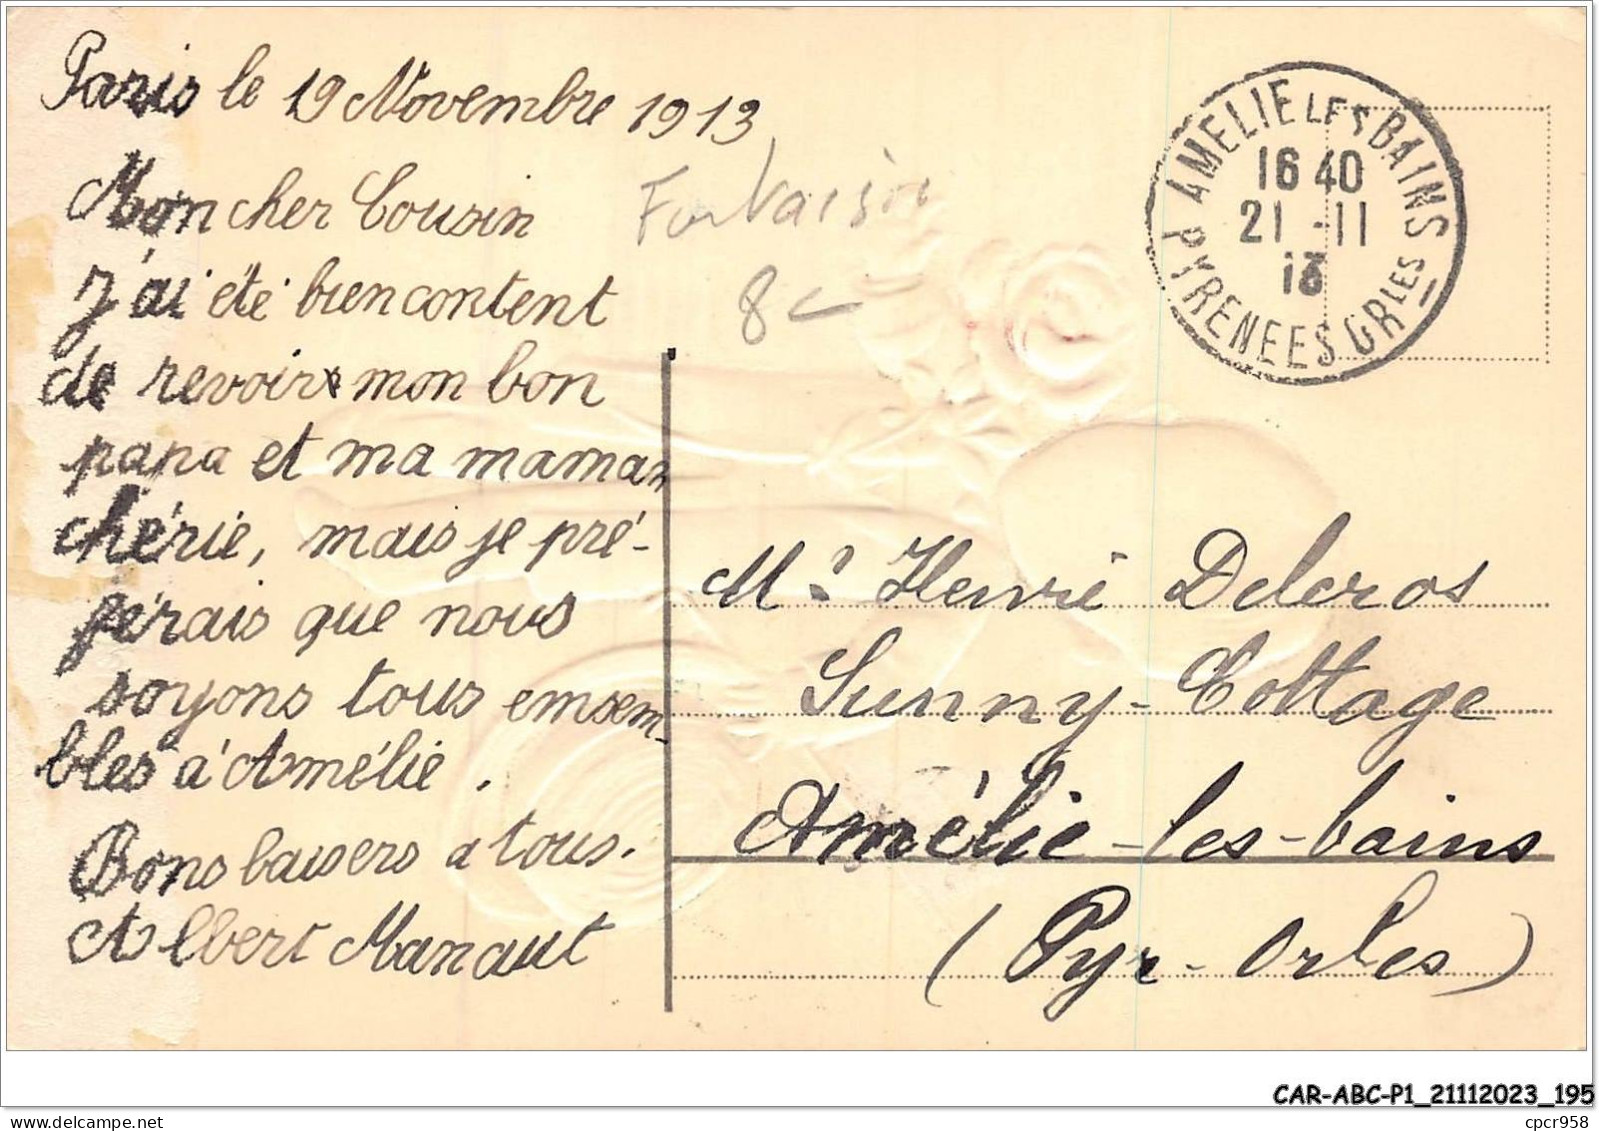 Paris le 19 Novembre 1913
Mon cher Cousin
J'ai été bien content
de revoir mon bon
papa et ma maman
chérie, mais je pré-
férais que nous
soyons tous emsem-
bles à Amélie.
Bons baisers a tous.
Albert Manaut
8
AMELIE LES BAINS
16 40
21 -11
13
PYRENEES ORLES
Mr Henri Delcros
Sunny-Cottage
Amélie-les-bains
(Pyr-Orles)
CAR-ABC-P1_21112023_195
cpcr958